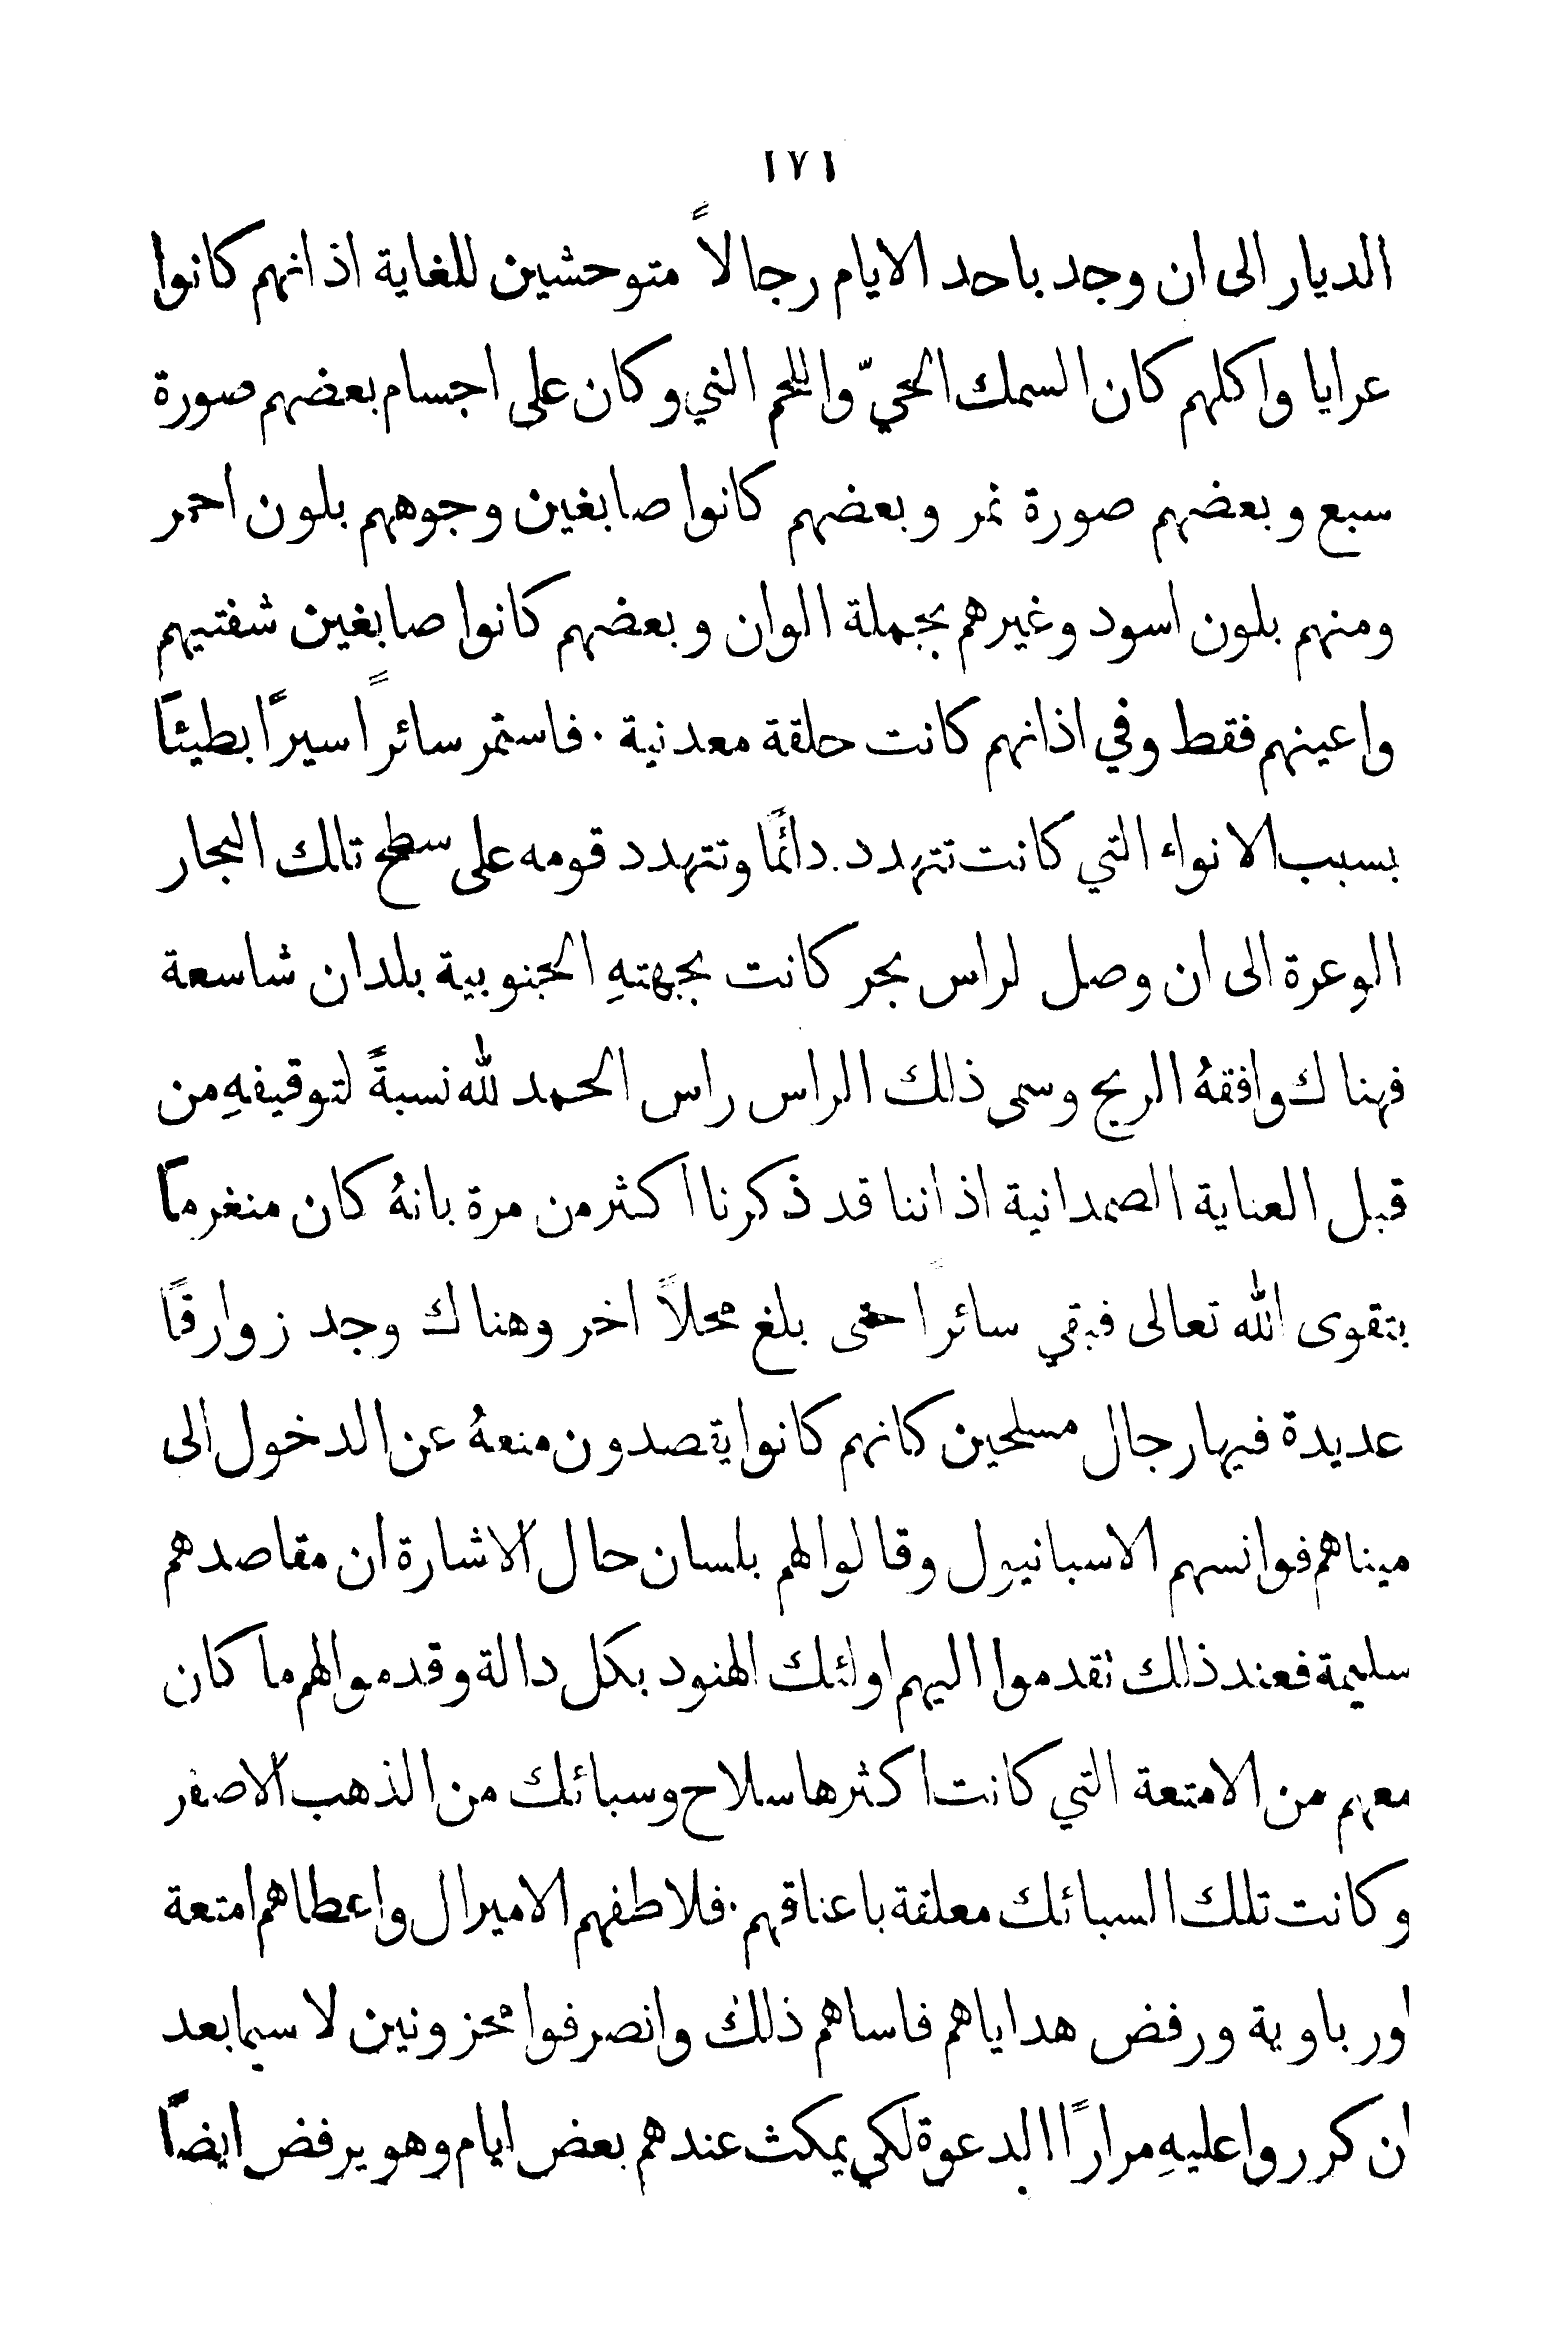 ١٧١
الديار الى ان وجد باحد الايام رجالاً متوحشين للغاية اذ انهم كانوا
عرايا واكلهم كان السمك الحيّ واللحم الني وكان على اجسام بعضهم صورة
سبع وبعضهم صورة نمر وبعضهم كانوا صابغين وجوههم بلون احمر
ومنهم بلون اسود وغيرهم بجملة الوان وبعضهم كانوا صابغين شفتيهم
واعينهم فقط وفي اذانهم كانت حلقة معدنية . فاستمر سائراً سيراً بطيئاً
بسبب الانواء التي كانت تتهدد دائماً وتتهدد قومه على سطح تلك البحار
الوعرة الى ان وصل لراس بحر كانت بجهتهِ الجنوبية بلدان شاسعة
فهناك وافقهُ الريح وسمى ذلك الراس راس الحمد لله نسبةً لتوقيفهِ من
قبل العناية الصمدانية اذ اننا قد ذكرنا اكثر من مرة بانهُ كان منغرماً
بتقوى الله تعالى فبقي سائراً حتى بلغ محلاً اخر وهناك وجد زوارقاً
عديدة فيها رجال مسلحين كانهم كانوا يقصدون منعهُ عن الدخول الى
ميناهم فوانسهم الاسبانيول وقالوا لهم بلسان حال الاشارة ان مقاصدهم
سليمة فعند ذلك تقدموا اليهم اولئك الهنود بكل دالة وقدموا لهم ما كان
معهم من الامتعة التي كانت اكثرها سلاح وسبائك من الذهب الاصفر
وكانت تلك السبائك معلقة باعناقهم . فلاطفهم الاميرال واعطاهم امتعة
اورباوية ورفض هداياهم فاساهم ذلك وانصرفوا محزونين لا سيما بعد
ان كرروا عليهِ مراراً الدعوة لكي يمكث عندهم بعض ايام وهو يرفض ايضاً